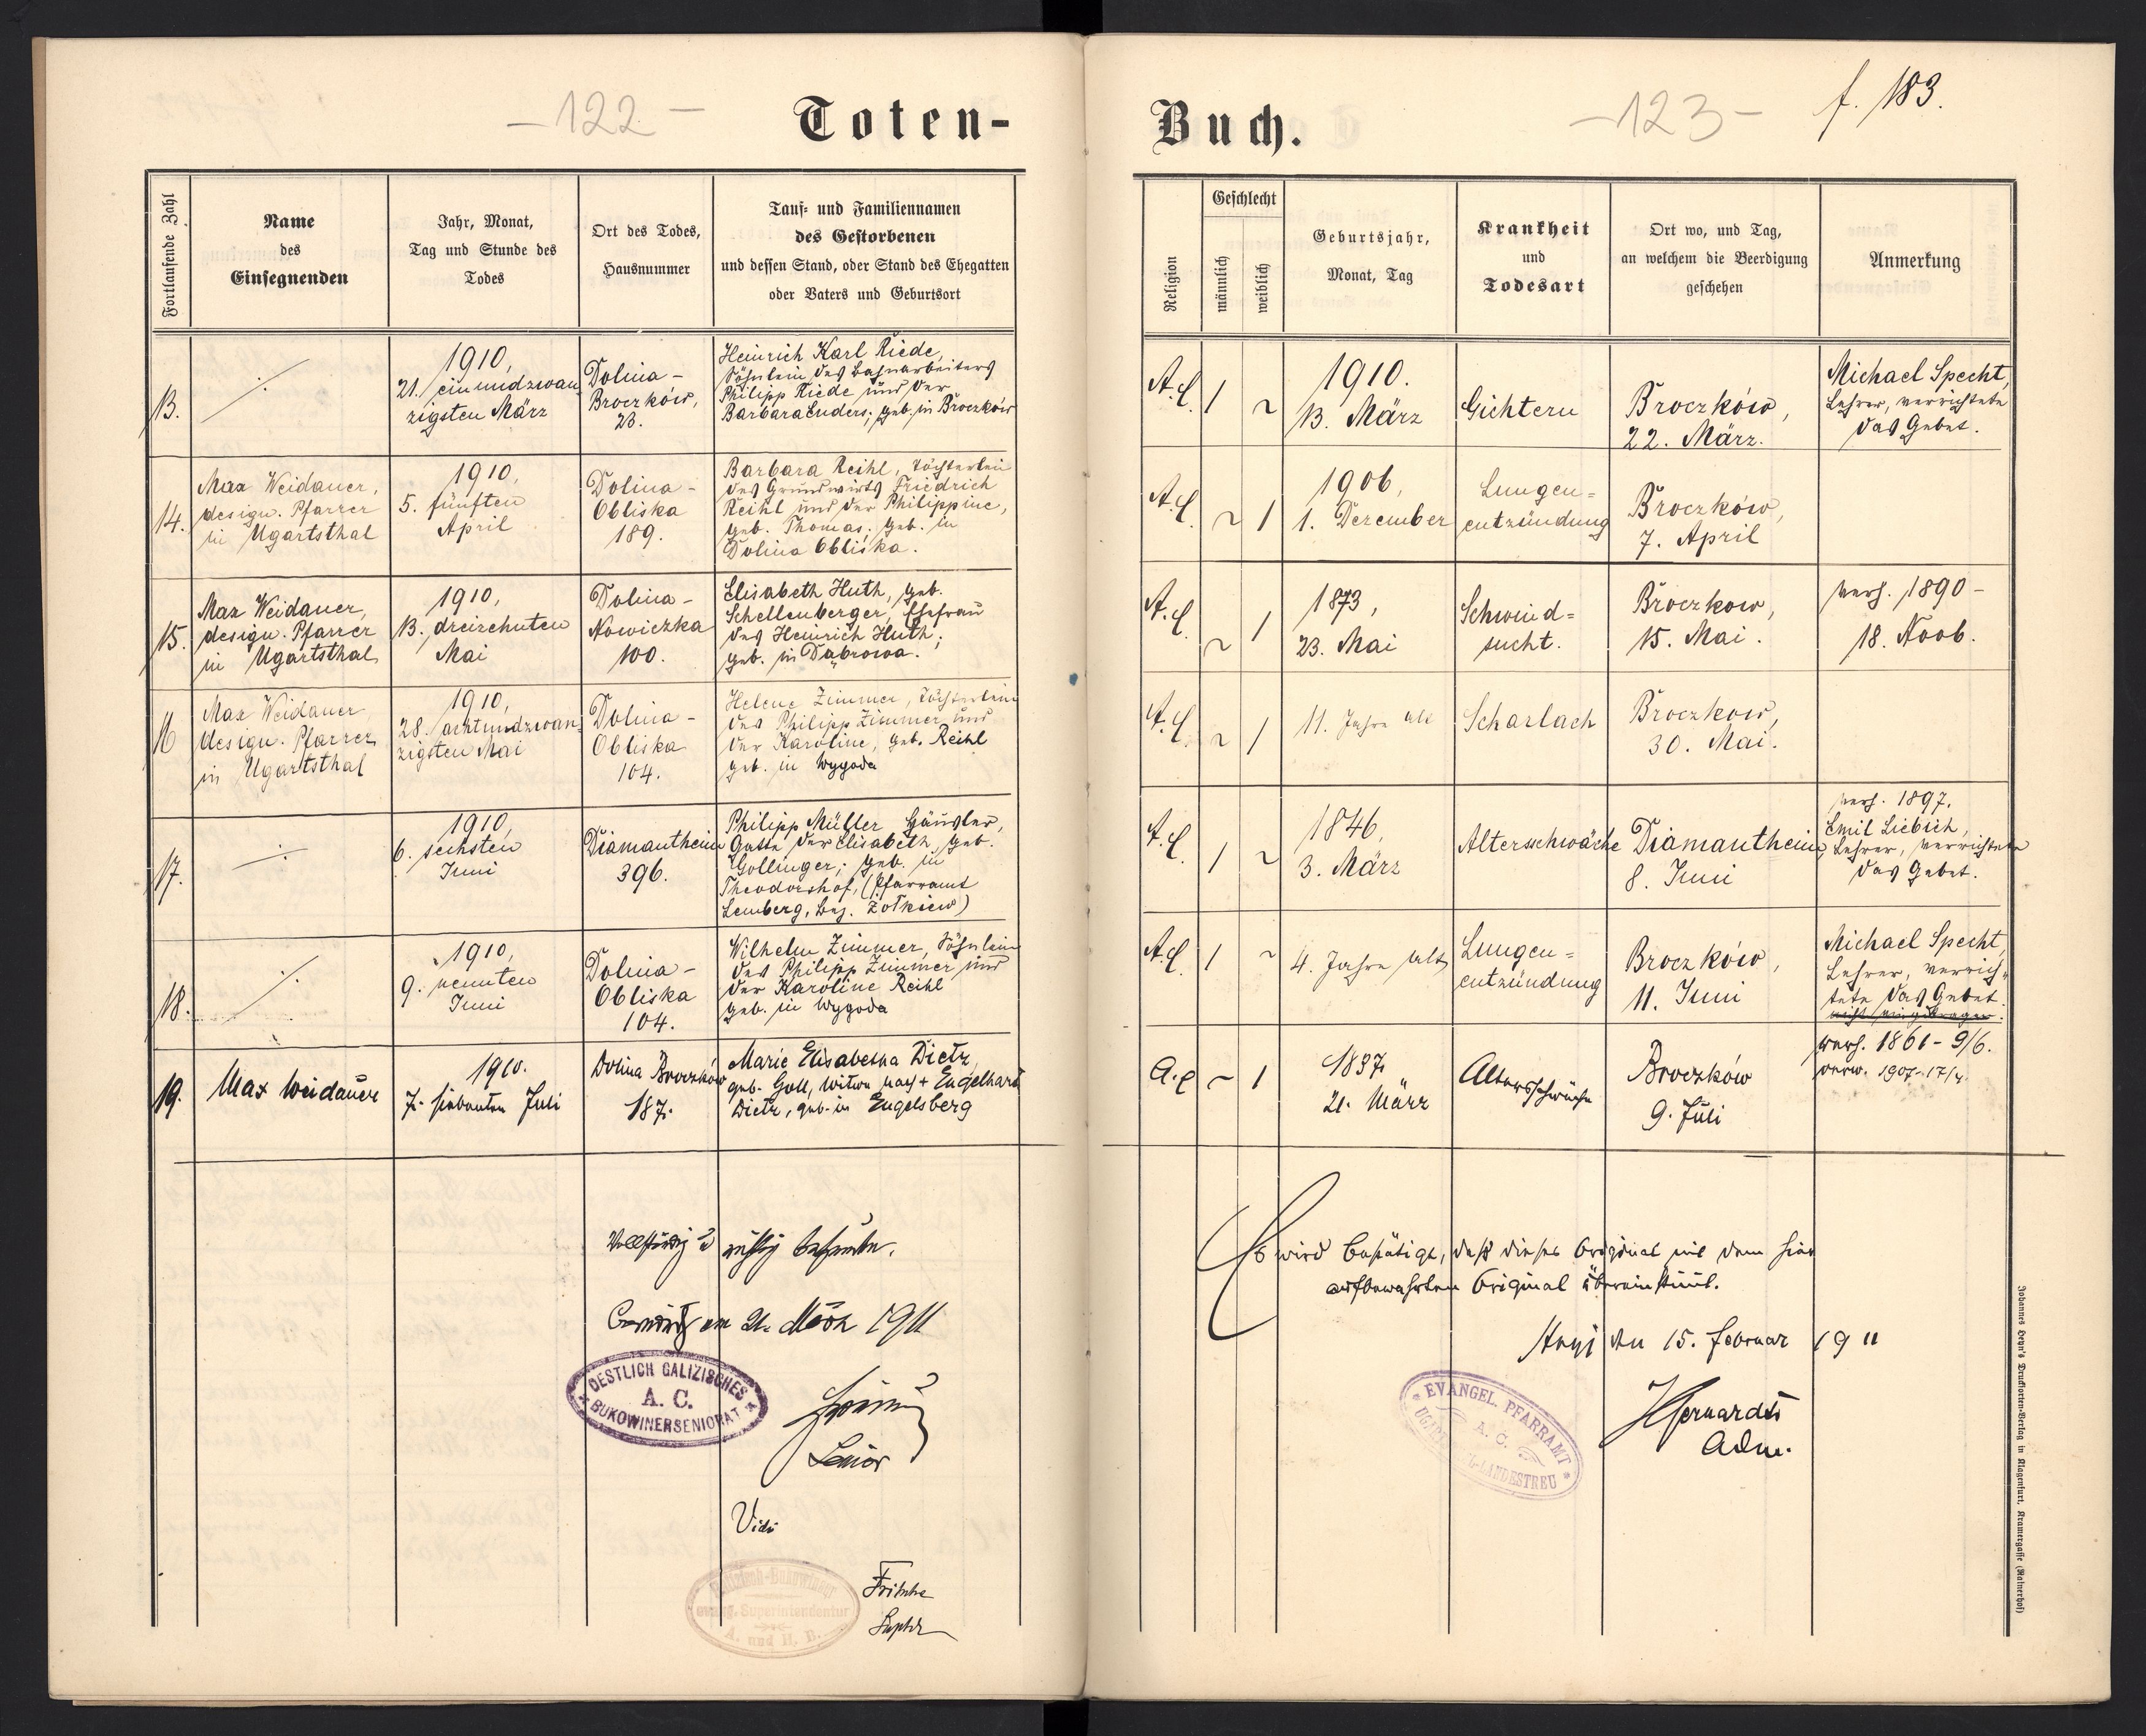 - 122 -
Toten-
Fortlaufende Zahl
Name
des
Einsegnenden
Jahr, Monat,
Tag und Stunde des
Todes
Ort des Todes,
Hausnummer
Tauf- und Familiennamen
des Gestorbenen
und dessen Stand, oder Stand des Ehegatten
oder Vaters und Geburtsort
13.
1910,
21. einundzwan
zigsten März
Dolina -
Broczków,
23.
Heinrich Karl Riede,
Söhnlein des Bahnarbeiters
Philipp Riede und der
Barbara Enders; geb. in Broczków
14.
Max Weidauer,
design. Pfarrer
in Ugartsthal
1910,
5. fünften
April
Dolina -
Obliska
189.
Barbara Reihl, Töchterlein
des Grundwirts Friedrich
Reihl und der Philippine,
geb. Thomas; geb. in
Dolina Obliska.
15.
Max Weidauer,
design. Pfarrer
in Ugartsthal
1910,
13. dreizehnten
Mai
Dolina -
Nowiczka
100.
Elisabeth Huth, geb.
Schellenberger, Ehefrau
des Heinrich Huth;
geb. in Dąbrowa.
16
Max Weidauer
design. Pfarrer
in Ugartsthal
1910,
28. achtundzwan=
zigsten Mai
Dolina -
Obliska
104.
Helene Zimmer, Töchterlein
des Philipp Zimmer und
der Karoline, geb. Reihl
geb. in Wygoda
17.
1910,
6. sechsten
Juni
Diamantheim
396.
Philipp Müller Häusler,
Gatte der Elisabeth, geb.
Gollinger; geb. in
Theodorshof, (Pfarramt
Lemberg, Bez. Żołkiew)
18.
1910,
9. neunten
Juni
Dolina -
Obliska
104.
Wilhelm Zimmer, Söhnlein
des Philipp Zimmer und
der Karoline Reihl
geb. in Wygoda
19.
Max Weidauer
1910.
7. siebenten Juli
Dolina Broczków
187.
Marie Elisabetha Dietz,
geb. Goll, Witwe nach + Engelhard
Dietz, geb. in Engelsberg
Vollständig u richtig befunden.
am 21. März 1911
OESTLICH GALIZISCHES
A. C.
BUKOWINERSENIORAT
Senior
Vidi
evang. Superintendentur
A. und H. B.
Fritsche
Suptdt
Buch.
- 123 -
f. 183.
Religion
Geschlecht
männlich
weiblich
Geburtsjahr,
Monat, Tag
Krankheit
und
Todesart
Ort wo, und Tag,
an welchem die Beerdigung
geschehen
Anmerkung
A.C.
1
~
1910.
13. März
Gichtern
Broczków,
22. März.
Michael Specht,
Lehrer, verrichtete
das Gebet.
A.C.
~
1
1906,
1. Dezember
Lungen=
entzündung
Broczków,
7. April
A.C.
~
1
1873,
23. Mai
Schwind=
sucht.
Broczkow,
15. Mai.
verh. 1890 -
18. Novb.
A.C.
~
1
11. Jahre alt
Scharlach
Broczkow,
30. Mai.
A.C.
1
~
1846,
3. März
Altersschwäche
Diamantheim,
8. Juni
verh. 1897.
Emil Liebich,
Lehrer, verrichtete
das Gebet.
A.C.
1
~
4. Jahre alt
Lungen=
entzündung
Broczków,
11. Juni
Michael Specht,
Lehrer, verrich=
tete das Gebet.
A.C
~
1
1837
21. März
Altersschwäche
Broczków
9. Juli
verh. 1861 - 9/6.
verw. 1907 - 17/4.
Es wird bestätigt, daß dieses Original mit dem hier
aufbewahrten Original übereinstimmt.
Stryj den 15. Februar 1911
EVANGEL. PFARRAMT
A. C.
LANDESTREU
Adm.
Johannes Heyn's Drucksorten-Verlag in Klagenfurt, Kramergasse (Rainerhof)